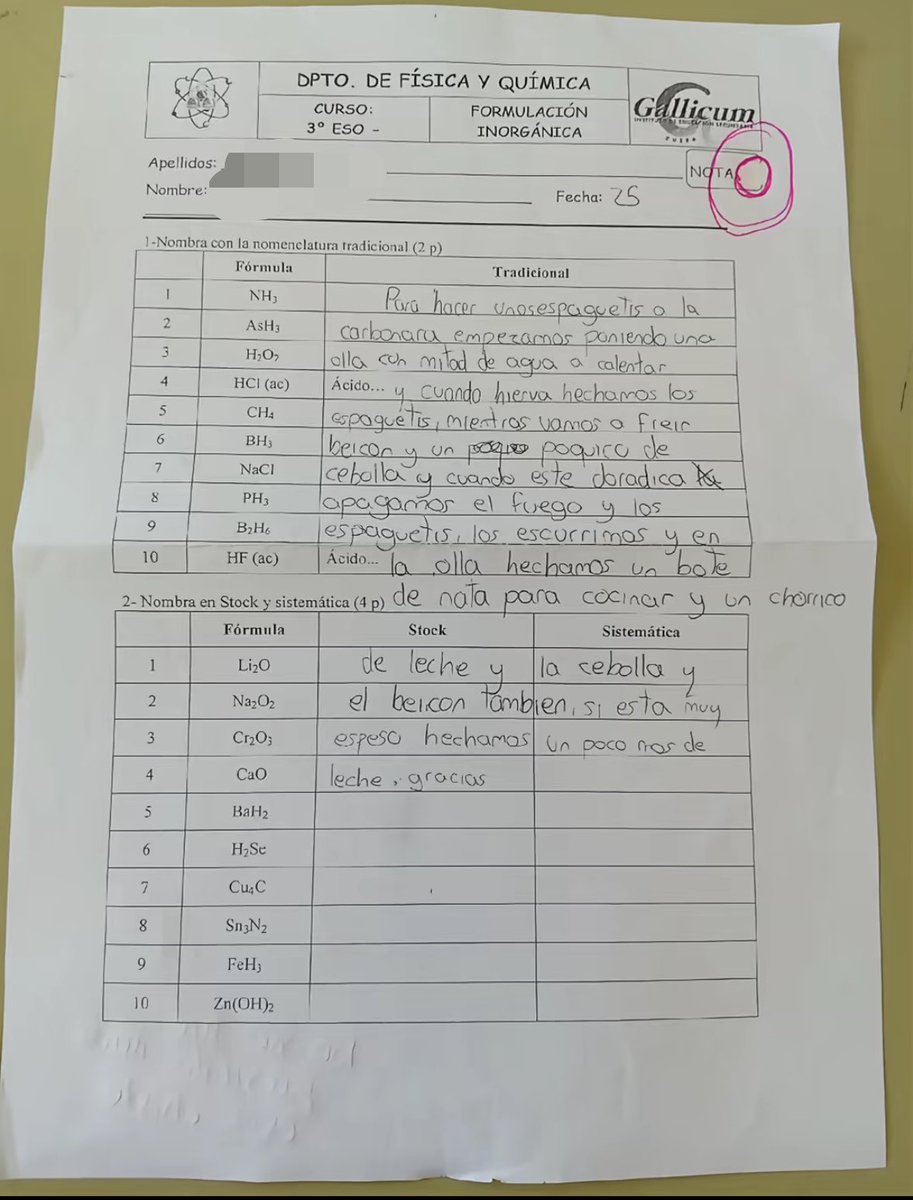 DPTO. DE FÍSICA Y QUÍMICA
CURSO:
3º ESO -
FORMULACIÓN
INORGÁNICA
Gallicum
INSTITUTO DE EDUCACIÓN SECUNDARIA
ZUERA
Apellidos:
NOTA
Nombre:
Fecha: 25
1-Nombra con la nomenclatura tradicional (2 p)
Fórmula Tradicional
1 NH₃ Para hacer unos espaguetis a la
2 AsH₃ carbonara empezamos poniendo una
3 H₂O₂ olla con mitad de agua a calentar
4 HCl (ac) Ácido... y cuando hierva hechamos los
5 CH₄ espaguetis, mientras vamos a freir
6 BH₃ beicon y un poquico de
7 NaCl cebolla y cuando este doradica
8 PH₃ apagamos el fuego y los
9 B₂H₆ espaguetis, los escurrimos y en
10 HF (ac) Ácido... la olla hechamos un bote
2- Nombra en Stock y sistemática (4 p) de nata para cocinar y un chorrico
Fórmula Stock Sistemática
1 Li₂O de leche y la cebolla y
2 Na₂O₂ el beicon tambien, si esta muy
3 Cr₂O₃ espeso hechamos un poco mas de
4 CaO leche, gracias
5 BaH₂
6 H₂Se
7 Cu₄C
8 Sn₃N₂
9 FeH₃
10 Zn(OH)₂